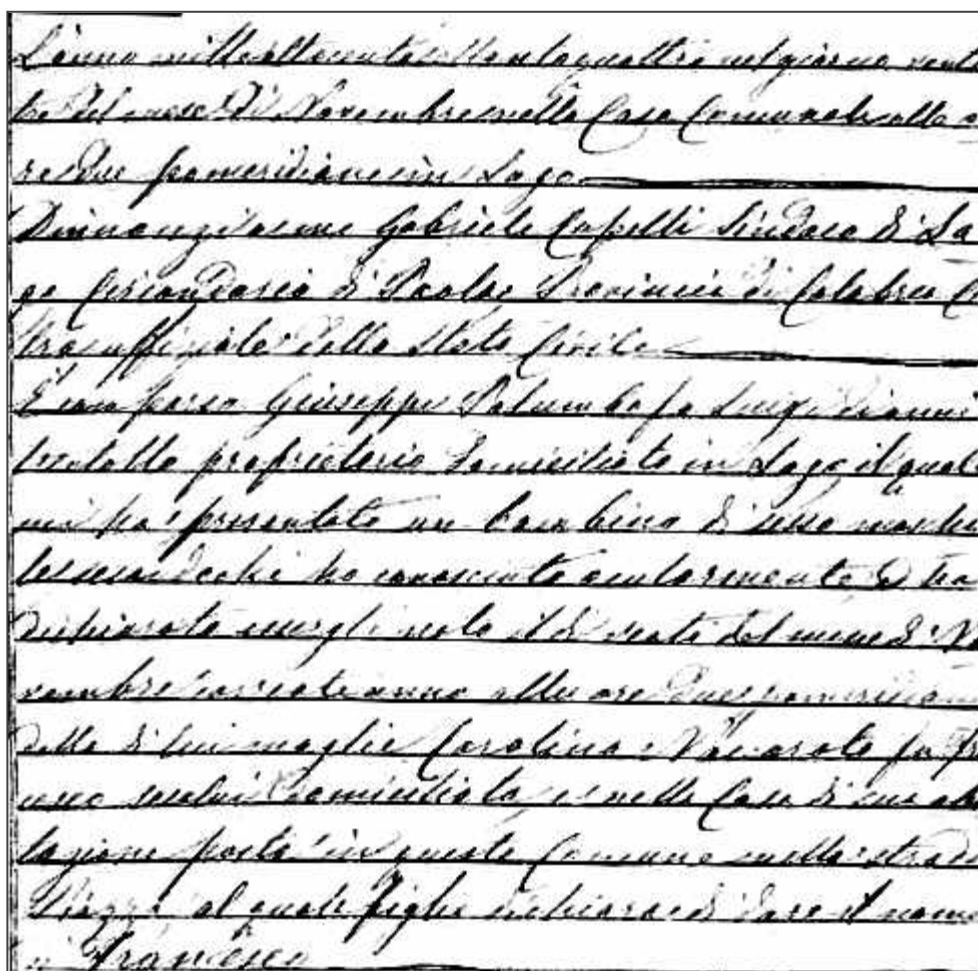 L'anno mille ottocento settantaquattro nel giorno vent
del mese di Novembre nella Casa Comunale alle o
re due pomeridiane in Lago
Dinnanzi a me Gabriele Cupelli Sindaco di La
go Circondario di Paola Provincia di Calabria C
tra uffiziale dello Stato Civile
È comparso Giuseppe Palumbo fu Luigi di anni
proprietario domiciliato in Lago il qual
mi ha presentato un bambino di sesso maschi
le secondochè ho conosciuto ocularmente e ha
dichiarato esser gli nato il dì venti del mese di No
vembre corrente anno alle ore due pomeridian
dalla di lui moglie Carolina fu Fr
seco lui domiciliata, e nella Casa di sua abi
tazione posta in questo Comune nella strad
Piazza al quale figlio dichiara di dare il nome
di Francesco